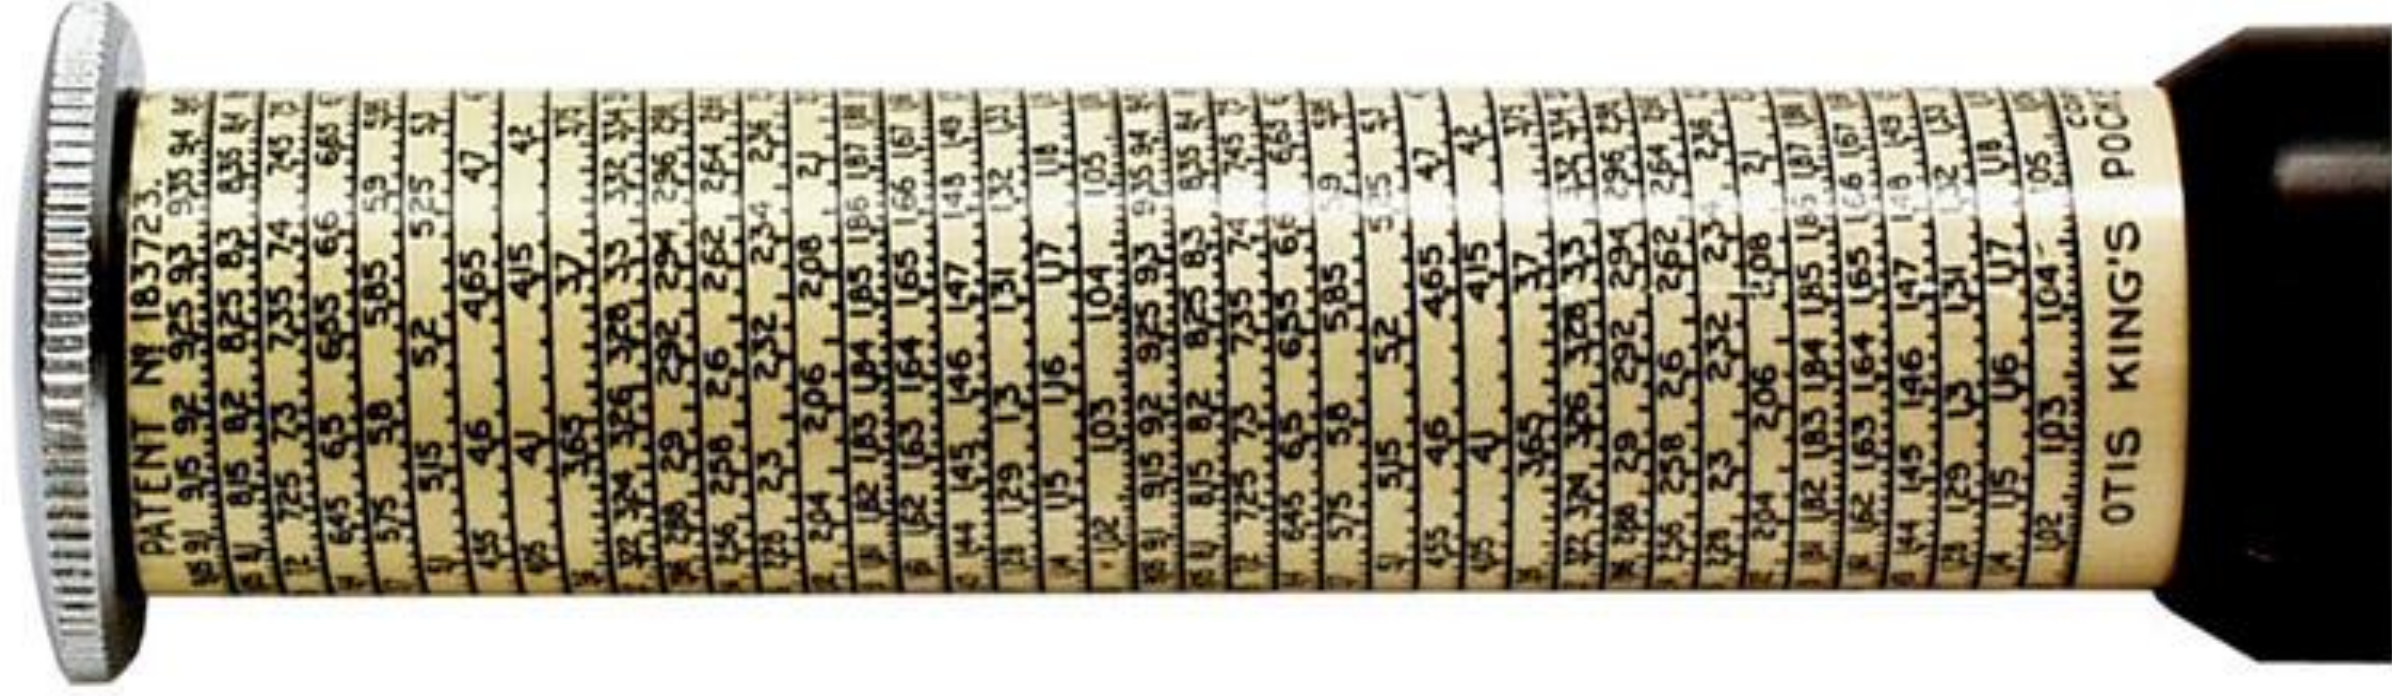 PATENT Nº 183723.
91 915 92 925 93 935 94
81 815 82 825 83 835 84
72 725 73 735 74 745
645 65 655 66 665
575 58 585 59 595
51 515 52 525 53
455 46 465 47
405 41 415 42
365 37 375
322 324 326 328 33 332 334
288 29 292 294 296 298
256 258 26 262 264
228 23 232 234 236
204 206 208 21
181 182 183 184 185 186 187 188
162 163 164 165 166 167
144 145 146 147 148 149
128 129 13 131 132 133
114 115 116 117 118
102 103 104 105
91 915 92 925 93 935 94
81 815 82 825 83 835 84
72 725 73 735 74 745
645 65 655 66 665
575 58 585 59
51 515 52 525 53
455 46 465 47
405 41 415 42
365 37 375
322 324 326 328 33 332 334
288 29 292 294 296 298
256 258 26 262 264
228 23 232 234 236
204 206 208 21
181 182 183 184 185 186 187 188
162 163 164 165 166 167
144 145 146 147 148 149
128 129 13 131 132 133
114 115 116 117 118
102 103 104 105
OTIS KING'S POCK